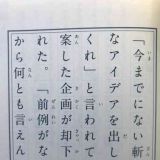 「今までにない斬
なアイデアを出し
くれ」と言われて
案した企画が却下
れた。「前例がな
から何とも言えん